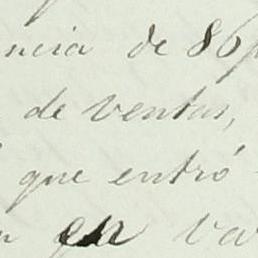 ncia de 86
de ventas,
que entró
en va